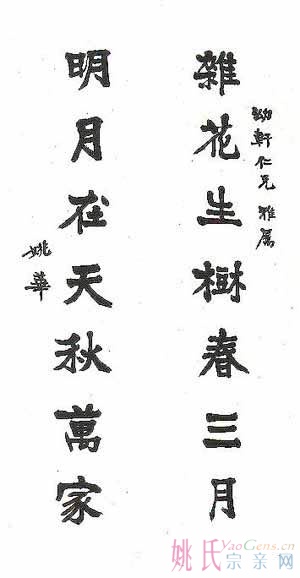 雜花生樹春三月
幼軒仁兄 雅屬
明月在天秋萬家
姚華
姚氏 YaoGens.cn
宗亲网